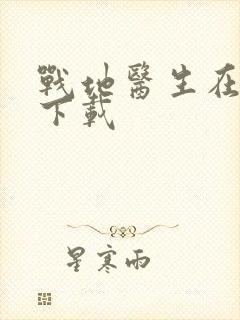 戰地醫生在
下載
星寒雨